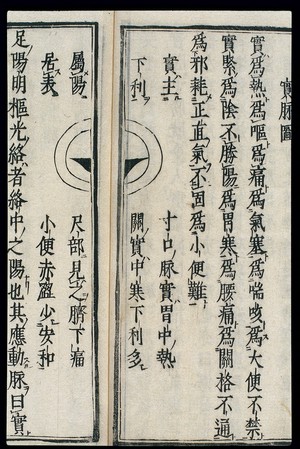 實脉圖
實為熱為嘔為痛為氣塞為喘咳為大便不禁
實緊為陰不勝陽為胃寒為腰痛為關格不通
為邪耗正直氣不固為小便難
實主
寸口脉實胃中熱
下利
關實中寒下利多
屬陽
尺部見之臍下痛
居表
小便赤澀少安和
足陽明樞光絡者絡中之陽也其應動脉曰實